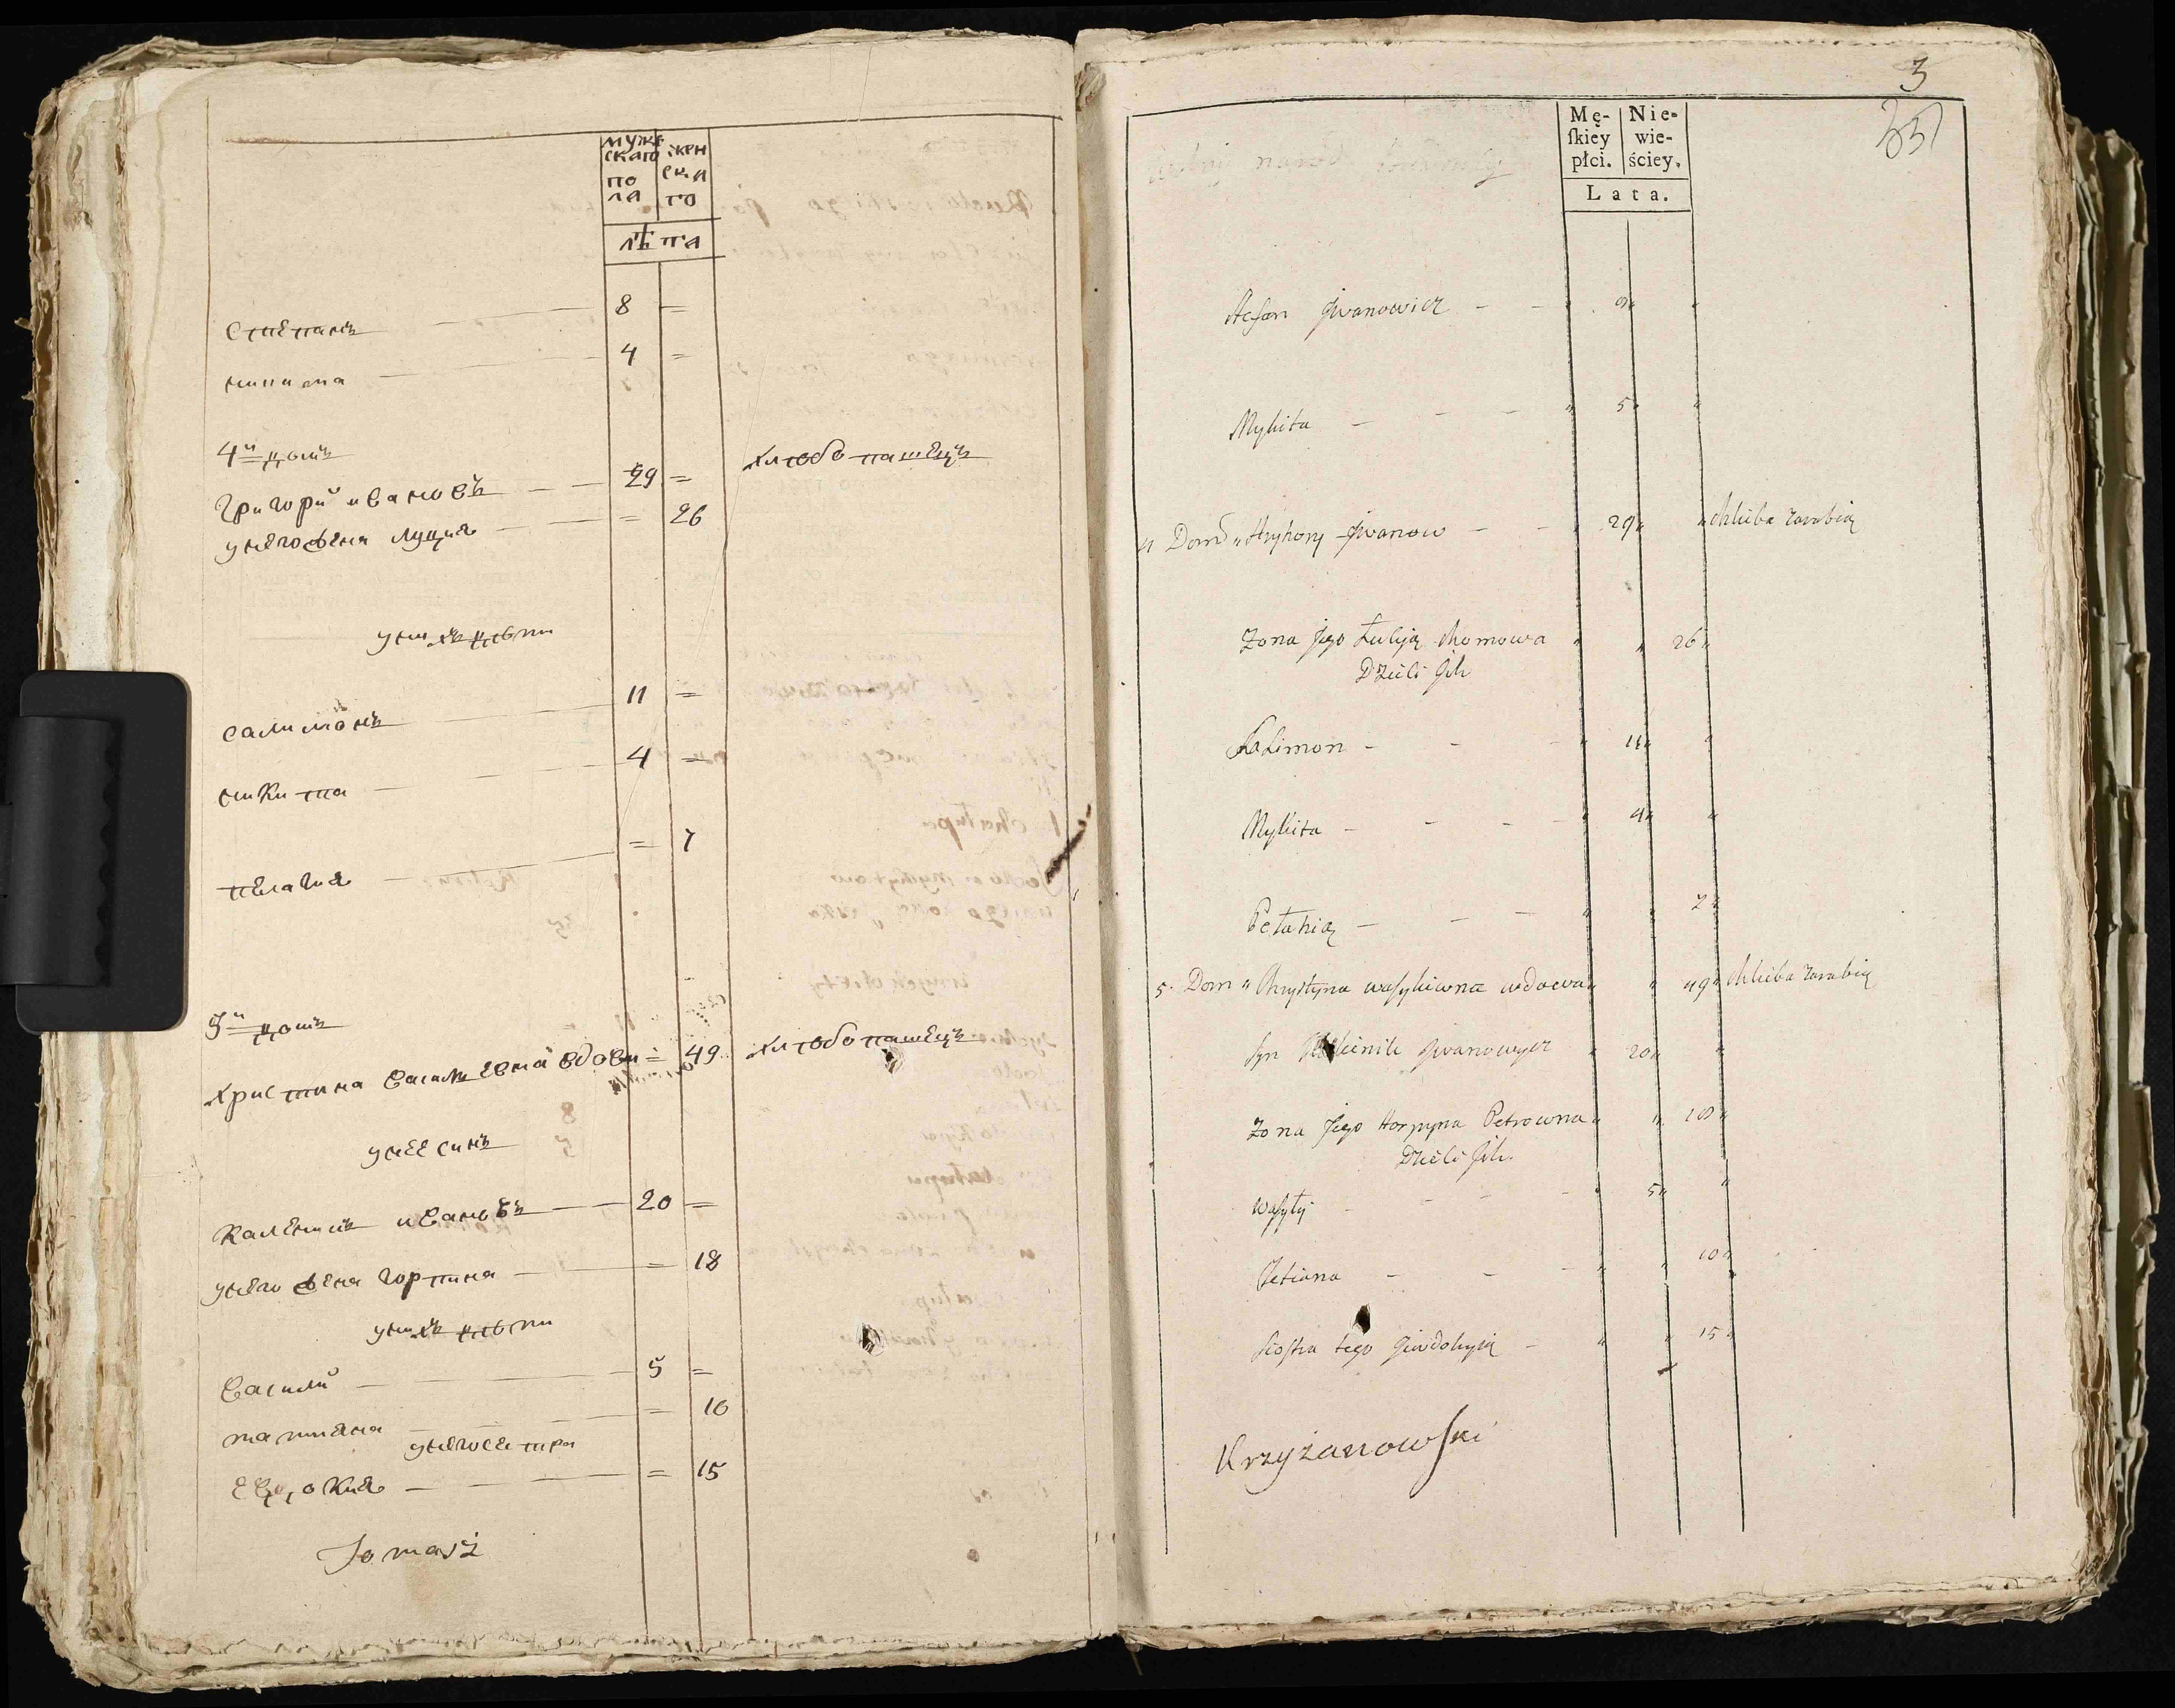 мужескаго пола
женскаго
лѣта
степанъ 8 =
никита 4 =
4й домъ
григорий ивановъ 29 = хлѣбопашецъ
унего жена луция = 26
унихъ дѣти
салимонъ 11 =
никита 4 =
пелагия = 7
5й домъ
христина василевна вдова = 49 хлѣбопашецъ
унее синъ
каленикъ ивановъ 20 =
унего жена горпина = 18
унихъ дѣти
василий 5 =
татияна = 10
унего сестра
евдокия = 15
Tomasz
3
35
Mę-skiey płci.
Nie-wie-ściey.
Lata.
Stefan Jwanowicz
Mykita 5
4 Dom Hryhory Jwanow 29 chliba zarabia
Zona Jego Łukija 26
Dzieci Jch
Salimon 11
Mykita 4
Pełahia 7
5 Dom Chrystyna wasyliwna wdowa 49 chliba zarabia
Syn Jwanowycz 20
Zona Jego Horpyna Petrowna 18
Dzieci Jch
Wasyly 5
Tetiana 10
Siostra tego Jewdokyia 15
Krzyżanowski